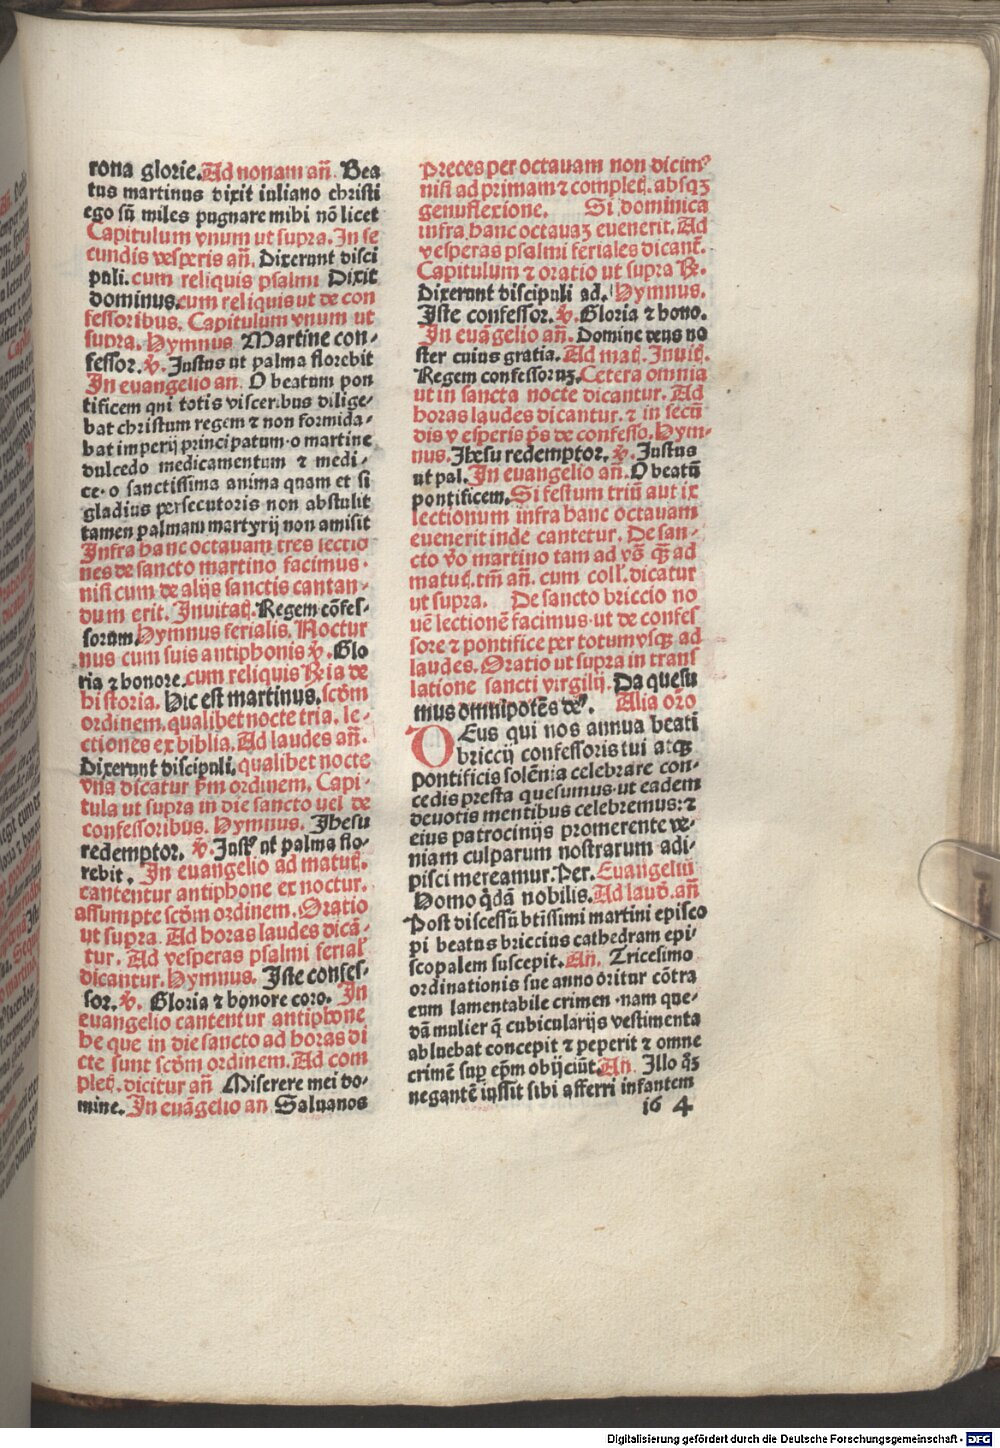 rona glorie. Ad nonam añ. Bea
tus martinus dixit iuliano christi
ego sū miles pugnare mihi nō licet
Capitulum vnum ut supra. In se
cundis vesperis añ. Dixerunt disci
puli. cum reliquis psalmi Dixit
dominus. cum reliquis ut de con
fessoribus. Capitulum vnum ut
supra. Hymnus Martine con-
fessor. ℣. Justus ut palma florebit
In euangelio an. O beatum pon
tificem qui totis visceribus dilige-
bat christum regem ⁊ non formida-
bat imperij principatum·o martine
dulcedo medicamentum ⁊ medi-
ce·o sanctissima anima quam et si
gladius persecutoris non abstulit
tamen palmam martyrij non amisit
Infra hanc octauam tres lectio
nes de sancto martino facimus·
nisi cum de alijs sanctis cantan-
dum erit. Inuitaꝗ. Regem cōfes-
sorum Hymnus ferialis. Noctur
nus cum suis antiphonis ℣. Glo
ria ⁊ honore. cum reliquis ℞ia de
historia. Hic est martinus. scōm
ordinem. qualibet nocte tria. le-
ctiones ex biblia. Ad laudes añ.
Dixerunt discipuli. qualibet nocte
vna dicatur p̄m ordinem. Capi-
tula ut supra in die sancto uel de
confessoribus. Hymnus. Jhesu
redemptor. ℣. Justꝰ ut palma flo-
rebit. In euangelio ad matuꝗ.
cantentur antiphone ex noctur.
assumpte scōm ordinem. Oratio
ut supra. Ad horas laudes dicā-
tur. Ad vesperas psalmi ferial'
dicantur. Hymnus. Iste confes-
sor. ℣. Gloria ⁊ honore coro. In
euangelio cantentur antiphone
he que in die sancto ad horas di
cte sunt scōm ordinem. Ad com
pleꝗ. dicitur añ Miserere mei do-
mine. In euāgelio an Saluanos
Preces per octauam non dicimꝰ
nisi ad primam ⁊ compleꝗ. absqꝫ
genuflexione. Si dominica
infra hanc octauaꝫ euenerit. Ad
vesperas psalmi feriales dicant̄.
Capitulum ⁊ oratio ut supra ℞.
Dixerunt discipuli ad. Hymnus.
Iste confessor. ℣. Gloria ⁊ hono.
In euāgelio añ. Domine deus no
ster cuius gratia. Ad maꝗ. Inuiꝗ.
Regem confessoruꝫ. Cetera omnia
ut in sancta nocte dicantur. Ad
horas laudes dicantur. ⁊ in secū
dis vesperis ps̄ de confesso. Hym-
nus. Jhesu redemptor. ℣. Justus
ut pal. In euangelio añ. O beatū
pontificem. Si festum triū aut ix
lectionum infra hanc octauam
euenerit inde cantetur. De san-
cto v̄o martino tam ad vs̄ qꝫ ad
matuꝗ. tm̄ añ. cum coll'. dicatur
ut supra. De sancto briccio no
uē lectionē facimus·ut de confes
sore ⁊ pontifice per totum vsqꝫ ad
laudes. Oratio ut supra in trans
latione sancti virgilij. Da quesu
mus omnipotēs deꝰ. Alia oro
DEus qui nos annua beati
briccij confessoris tui atqꝫ
pontificis solēnia celebrare con-
cedis presta quesumus·ut eadem
deuotis mentibus celebremus:⁊
eius patrocinijs promerente ve-
niam culparum nostrarum adi-
pisci mereamur. Per. Euangeliū
Homo q̄dā nobilis. Ad laud. añ
Post discessū btissimi martini episco
pi beatus briccius cathedram epi-
scopalem suscepit. An. Tricesimo
ordinationis sue anno oritur cōtra
eum lamentabile crimen·nam que-
dā mulier q̄ cubicularijs vestimenta
abluebat concepit ⁊ peperit ⁊ omne
crimē sup ep̄m obijciūt. An. Illo qꝫ
negantē iussit sibi afferri infantem
16 4
Digitalisierung gefördert durch die Deutsche Forschungsgemeinschaft - DFG